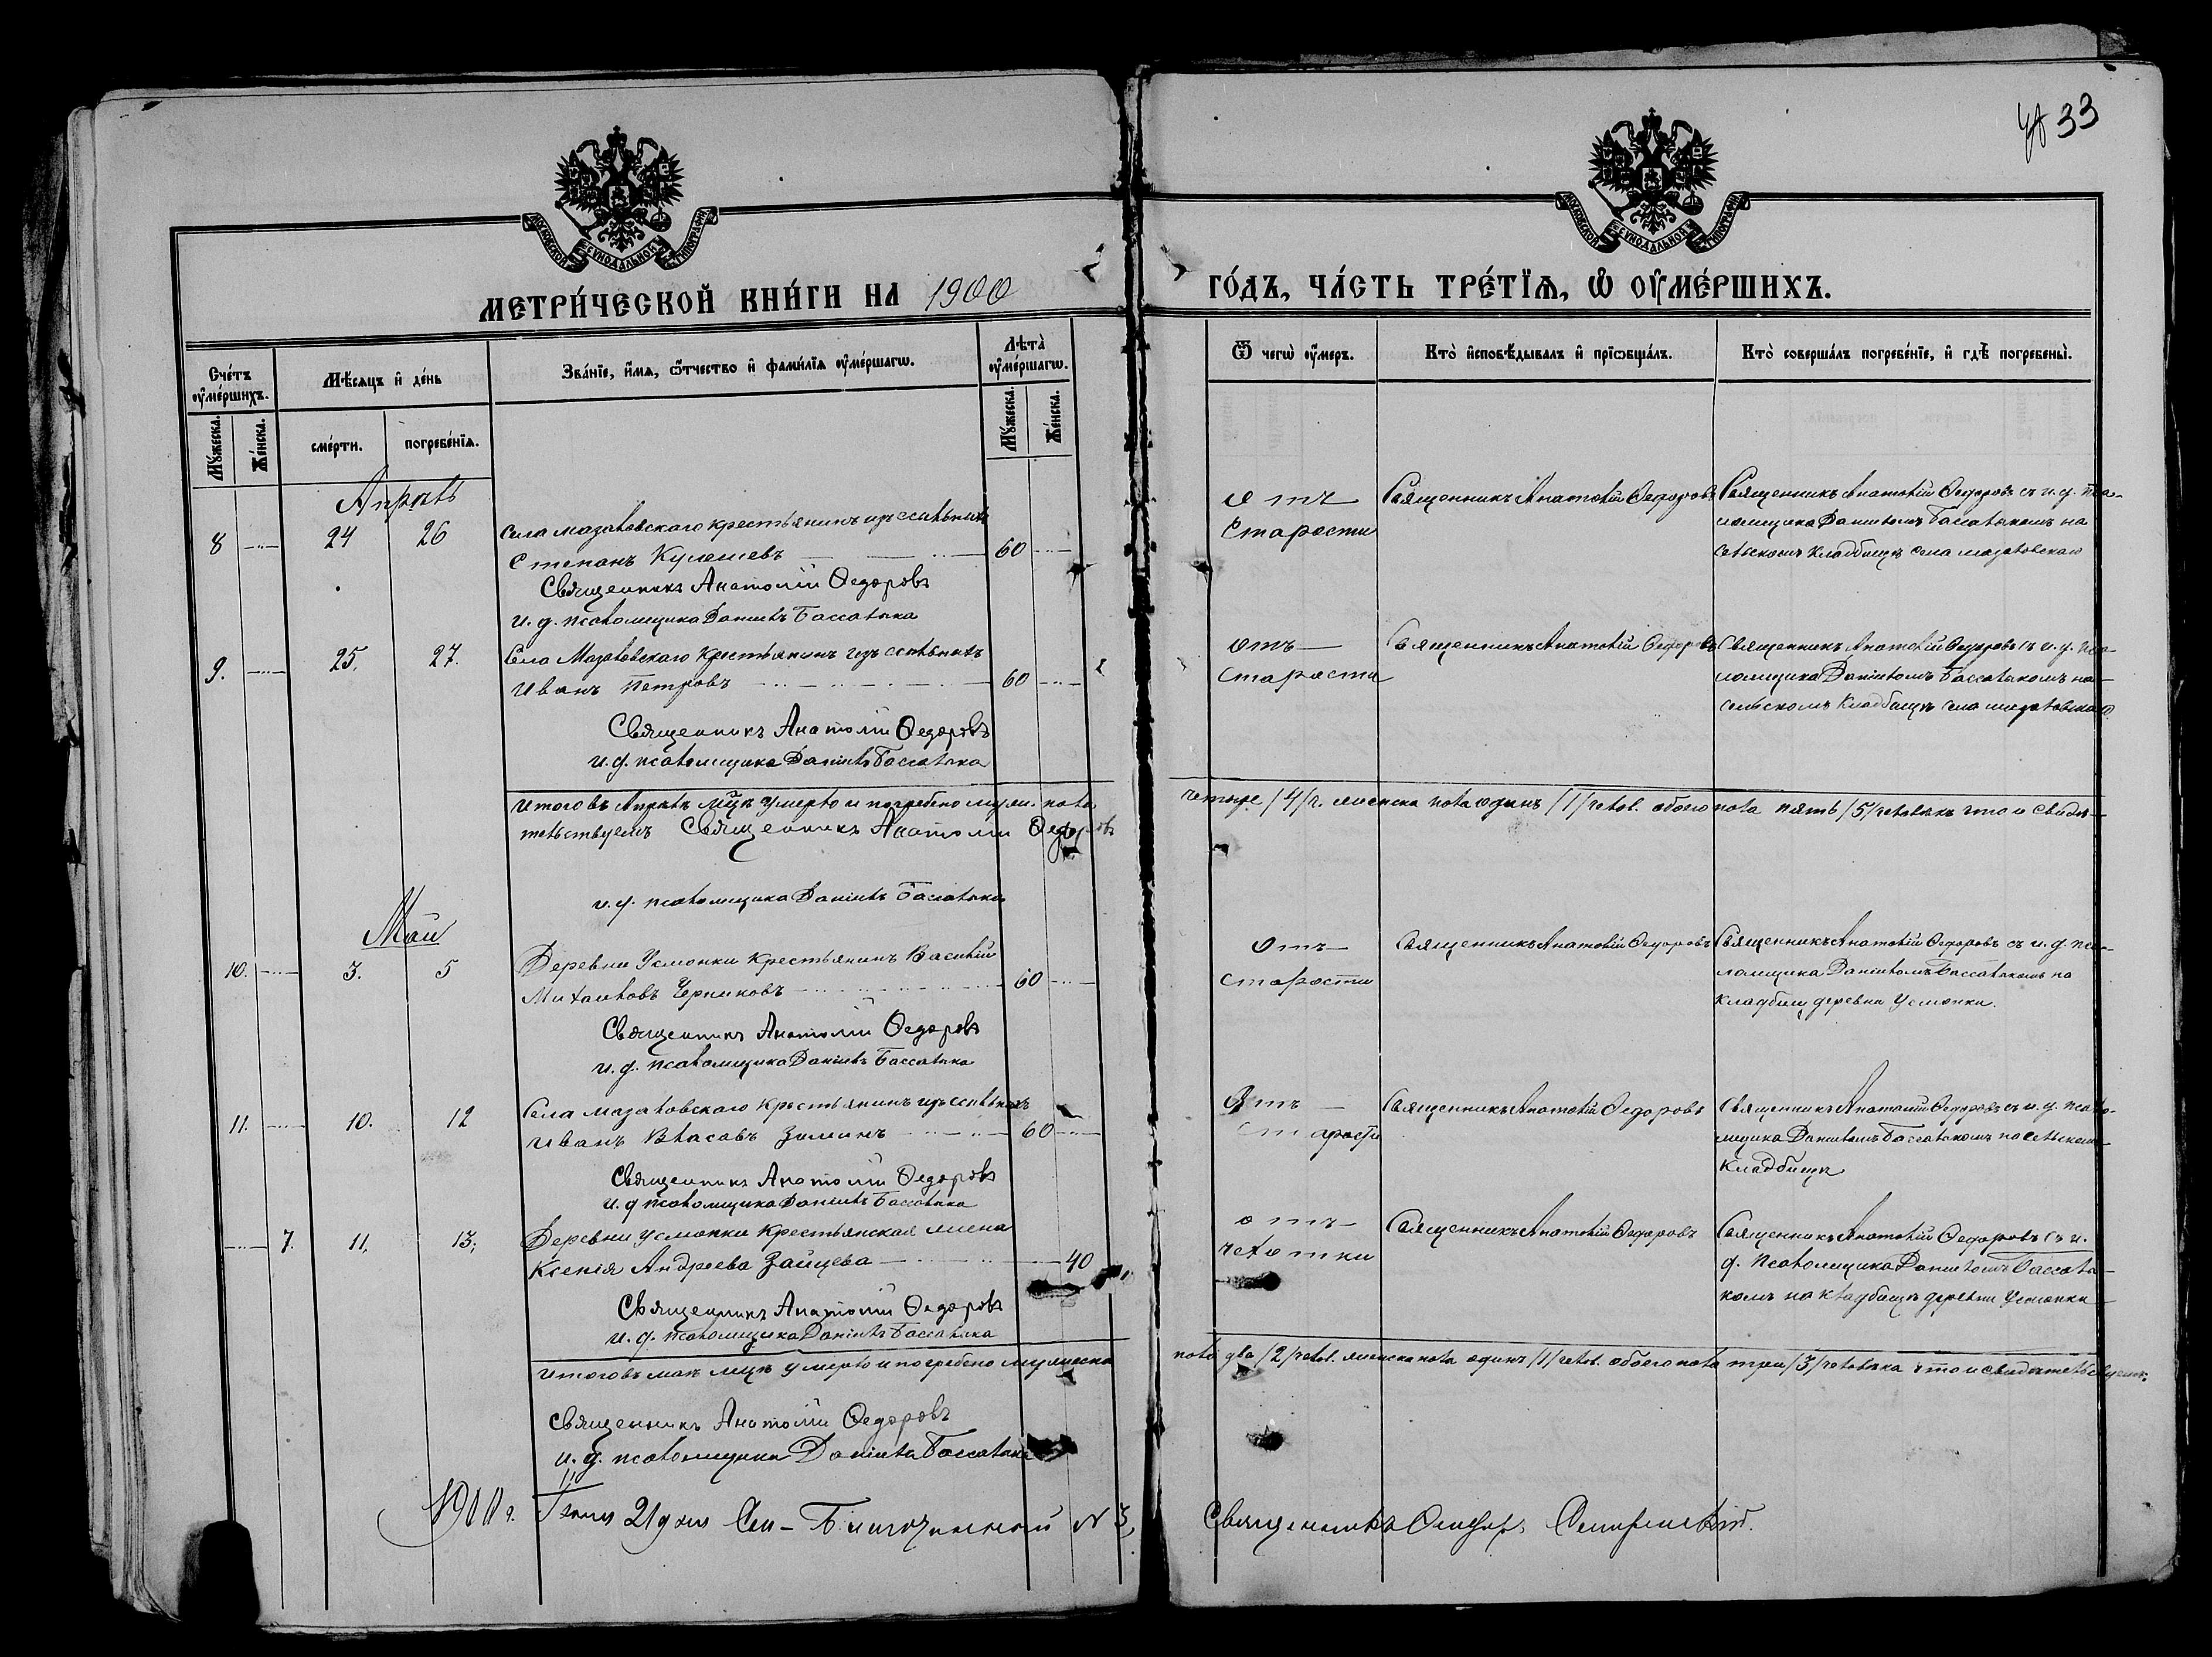 33
МОСКОВСКОЙ СѴНОДАЛЬНОЙ ТИПОГРАФІИ
МОСКОВСКОЙ СѴНОДАЛЬНОЙ ТИПОГРАФІИ
МЕТРИ́ЧЕСКОЙ КНИ́ГИ НА 1900 ГО́ДЪ, ЧА́СТЬ ТРЕ́ТІѦ, Ѡ ОУМЕ́РШИХЪ.
Сче́тъ оуме́ршихъ.
Мѣ́сѧцъ и де́нь
Зва́нїе, и́мѧ, ѻ́тчество и фами́лїѧ оуме́ршагѡ.
Лѣта̀ оуме́ршагѡ.
Ѿ чегѡ̀ оу́меръ.
Кто̀ исповѣ́дывалъ и прїѡбща́лъ.
Кто̀ соверша́лъ погребе́нїе, и гдѣ̀ погребены̀.
Мꙋ́жеска.
Же́нска.
сме́рти.
погребе́нїѧ.
Мꙋ́жеска.
Же́нска.
Апрѣль
8 24 26 Села Мазаловскаго крестьянинъ изъ ссыльныхъ
Степанъ Кулешевъ 60
Священникъ Анатолій Ѳедоровъ
и. д. псаломщика Даніилъ Бассалыка
отъ
Старости
Священникъ Анатолій Ѳедоровъ
Священникъ Анатолій Ѳедоровъ съ и. д. пса-
ломщика Даніиломъ Бассалыкомъ на
сельскомъ кладбищѣ села Мазаловскаго
9. 25. 27. Села Мазаловскаго Крестьянинъ изъ ссыльныхъ
Иванъ Петровъ 60
Священникъ Анатолій Ѳедоровъ
и. д. псаломщика Даніилъ Бассалыка
отъ
старости
Священникъ Анатолій Ѳедоровъ
Священникъ Анатолій Ѳедоровъ съ и. д. пса-
ломщика Даніиломъ Бассалыкомъ на
сельскомъ кладбищѣ села Мазаловскаго
Итого въ Апрѣлѣ мцѣ умерло и погребено муж. пола четыре /4/ ч. женска пола одинъ /1/ челов. обоего пола пять /5/ человѣкъ что и свидѣ-
тельствуемъ Священникъ Анатолій Ѳедоровъ
и. д. псаломщика Даніилъ Бассалыка
Май
10. 3. 5 Деревни Усмонки крестьянинъ Василій
Михаиловъ Черниковъ 60
Священникъ Анатолій Ѳедоровъ
и. д. псаломщика Даніилъ Бассалыка
отъ
старости
Священникъ Анатолій Ѳедоровъ
Священникъ Анатолій Ѳедоровъ съ и. д. пса-
ломщика Даніиломъ Бассалыкомъ на
кладбищ деревни Усмонки.
11. 10. 12 Села Мазаловскаго Крестьянинъ изъ ссыльныхъ
Иванъ Власовъ Зиминъ 60
Священникъ Анатолій Ѳедоровъ
и. д псаломщика Даніилъ Бассалыка
Отъ
Старости
Священникъ Анатолій Ѳедоровъ
Священникъ Анатолій Ѳедоровъ съ и. д. псало-
мщика Даніиломъ Бассалыкомъ на сельском
кладбищѣ
7. 11, 13; Деревни Усмонки Крестьянская жена
Ксенія Андреева Зайцева 40
Священникъ Анатолій Ѳедоровъ
и. д. псаломщика Даніилъ Бассалыка
отъ
чехотки
Священникъ Анатолій Ѳедоровъ
Священникъ Анатолій Ѳедоровъ съ и.
д. Псаломщика Даніиломъ Бассалы-
комъ на кладбищѣ деревни Усмонки
Итого въ маѣ мцѣ умерло и погребено мужеска пола два /2/ челов. женска пола одинъ /1/ челов. обоего пола три /3/ человѣка что и свидѣтельствуемъ.
Священникъ Анатолій Ѳедоровъ
и. д. псаломщика Даніилъ Бассалыка
21 дня № 3, Священникъ